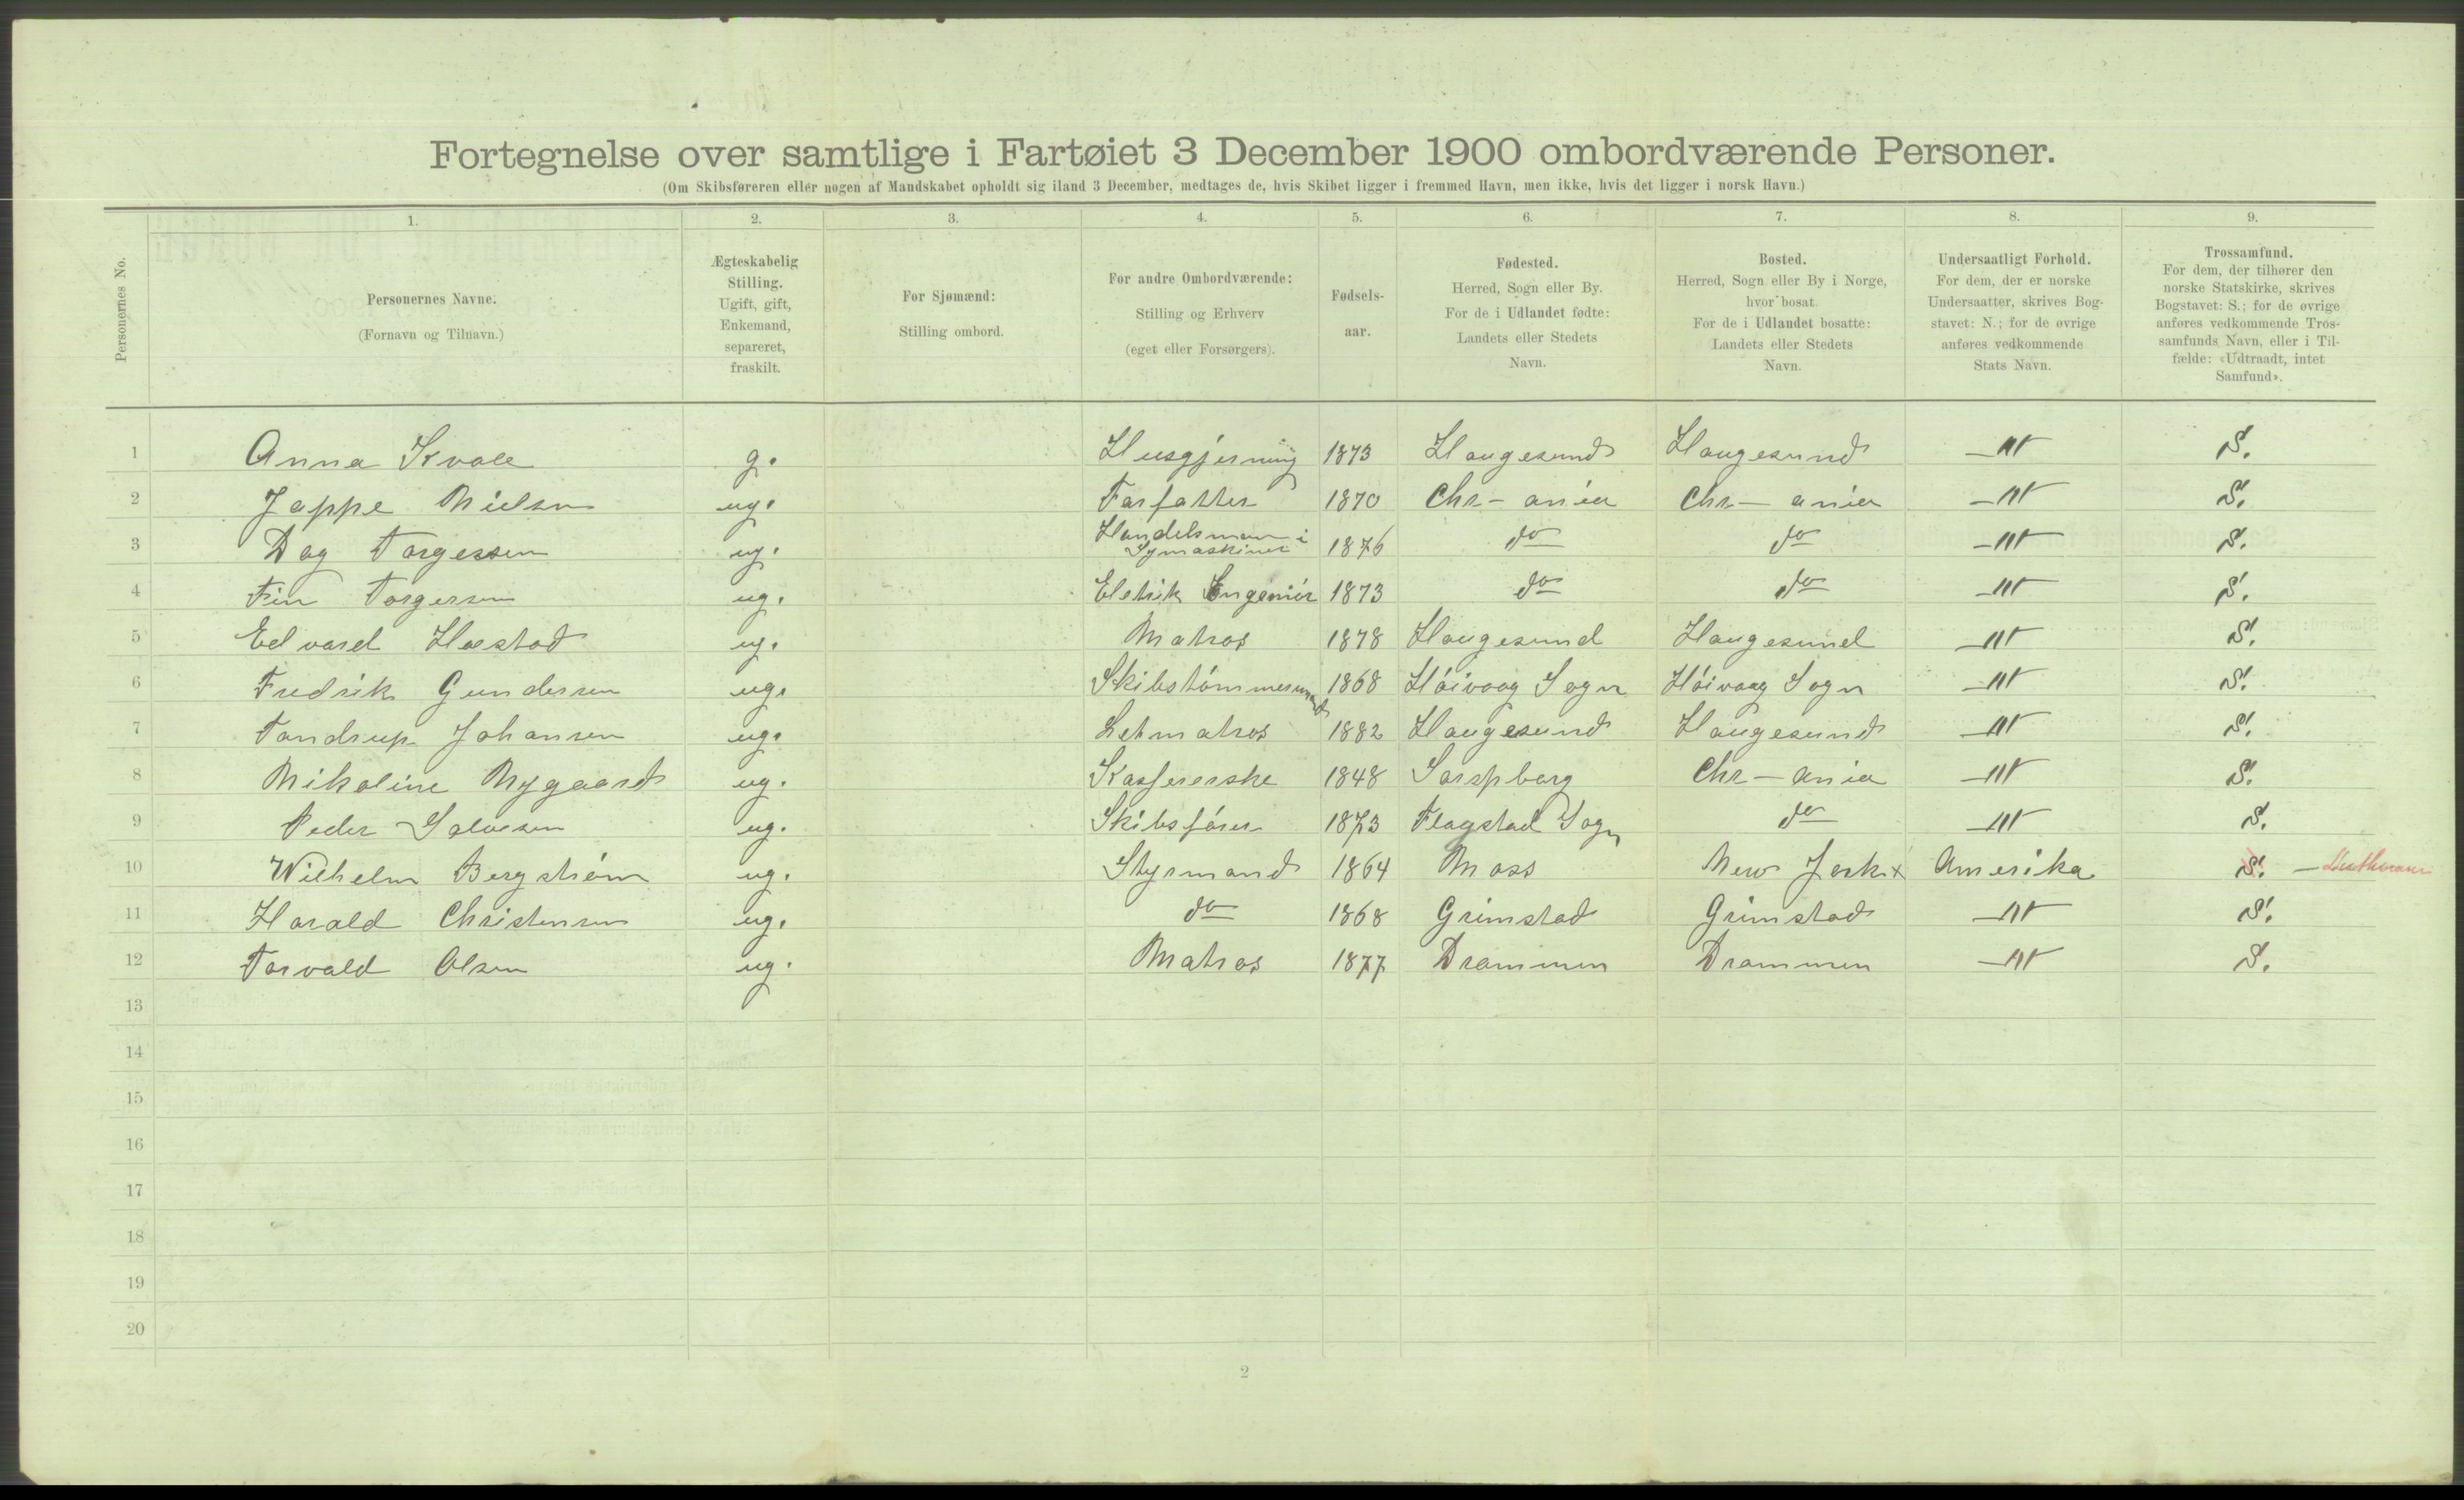 Fortegnelse over samtlige i Fartøiet 3 December 1900 ombordværende Personer.
(Om Skibsføreren eller nogen af Mandskabet opholdt sig iland 3 December, medtages de, hvis Skibet ligger i fremmed Havn, men ikke, hvis det ligger i norsk Havn.)
Personernes No.
1.
Personernes Navne.
(Fornavn og Tilnavn.)
2.
Ægteskabelig
Stilling.
Ugift, gift,
Enkemand,
separeret,
fraskilt.
3.
For Sjømænd:
Stilling ombord.
4.
For andre Ombordværende:
Stilling og Erhverv
(eget eller Forsørgers).
5.
Fødsels-
aar.
6.
Fødested.
Herred, Sogn eller By.
For de i Udlandet fødte:
Landets eller Stedets
Navn.
7.
Bosted.
Herred, Sogn eller By i Norge,
hvor bosat.
For de i Udlandet bosatte:
Landets eller Stedets
Navn.
8.
Undersaatligt Forhold.
For dem, der er norske
Undersaatter, skrives Bog-
stavet: N.; for de øvrige
anføres vedkommende
Stats Navn.
9.
Trossamfund.
For dem, der tilhører den
norske Statskirke, skrives
Bogstavet: S.; for de øvrige
anføres vedkommende Tros-
samfunds Navn, eller i Til-
fælde: «Udtraadt, intet
Samfund».
1 Anna Kvale g. Husgjerning 1873 Haugesund Haugesund N S.
2 Jappe Nielsen ug. Forfatter 1870 Chr-ania Chr-ania N S.
3 Dag Torgersen ug. Handelsman i Symaskiner 1876 do do N S.
4 Fin Torgersen ug. Eletrik Ingeniør 1873 do do N S.
5 Edvard Hastad ug. Matros 1878 Haugesund Haugesund N S.
6 Fredrik Gundersen ug. Skibstömmermand 1868 Höivaag Sogn Höivaag Sogn N S.
7 Tandrup Johansen ug. Letmatros 1882 Haugesund Haugesund N S.
8 Nikoline Nygaard ug. Kassererske 1848 Sarpsborg Chr-ania N S.
9 Peder Salvesen ug. Skibsförer 1873 Flagstad Sogn do N S.
10 Wilhelm Bergström ug. Styrmand 1864 Moss New Jork x Amerika S. -
11 Harald Christensen ug. do 1868 Grimstad Grimstad N S.
12 Torvald Olsen ug. Matros 1877 Drammen Drammen N S.
13
14
15
16
17
18
19
20
2